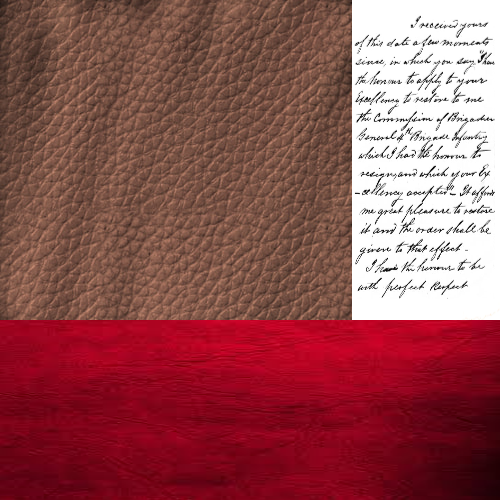 I received yours
of this date a few moments
since, in which you say "I have
the honour to apply to your
Excellency to restore to me
the Commission of Brigadier
General 4th Brigade Infantry
which I had the honour to
resign, and which your Ex
-cellency accepted" - It affords
me great pleasure to restore
it and the order shall be
given to that effect -
I have the honour to be
with perfect Respect